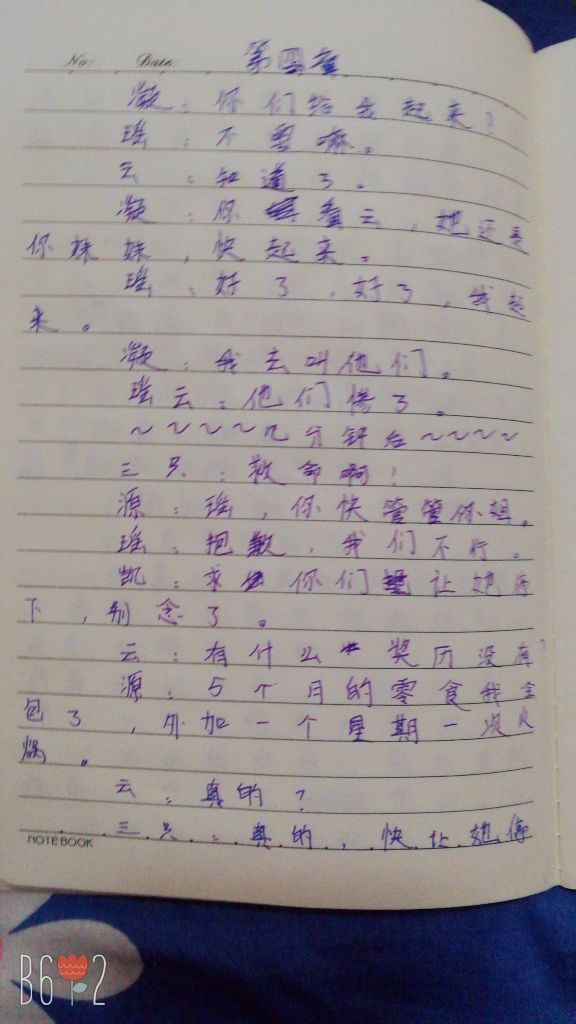 No: Date: 第四章
凝：你们给我起来！
瑶：不要嘛。
云：知道了。
凝：你看云，她还是
你妹妹，快起来。
瑶：好了，好了，我起
来。
凝：我去叫他们。
瑶云：他们惨了。
～～～～几分钟后～～～～
三只：救命啊！
源：瑶，你快管管你姐。
瑶：抱歉，我们不行。
凯：求你们让她停
下，别念了。
云：有什么奖历没有？
源：5个月的零食我全
包了，外加一个星期一次火
锅。
云：真的？
三只：真的，快让她停
NOTEBOOK
B612